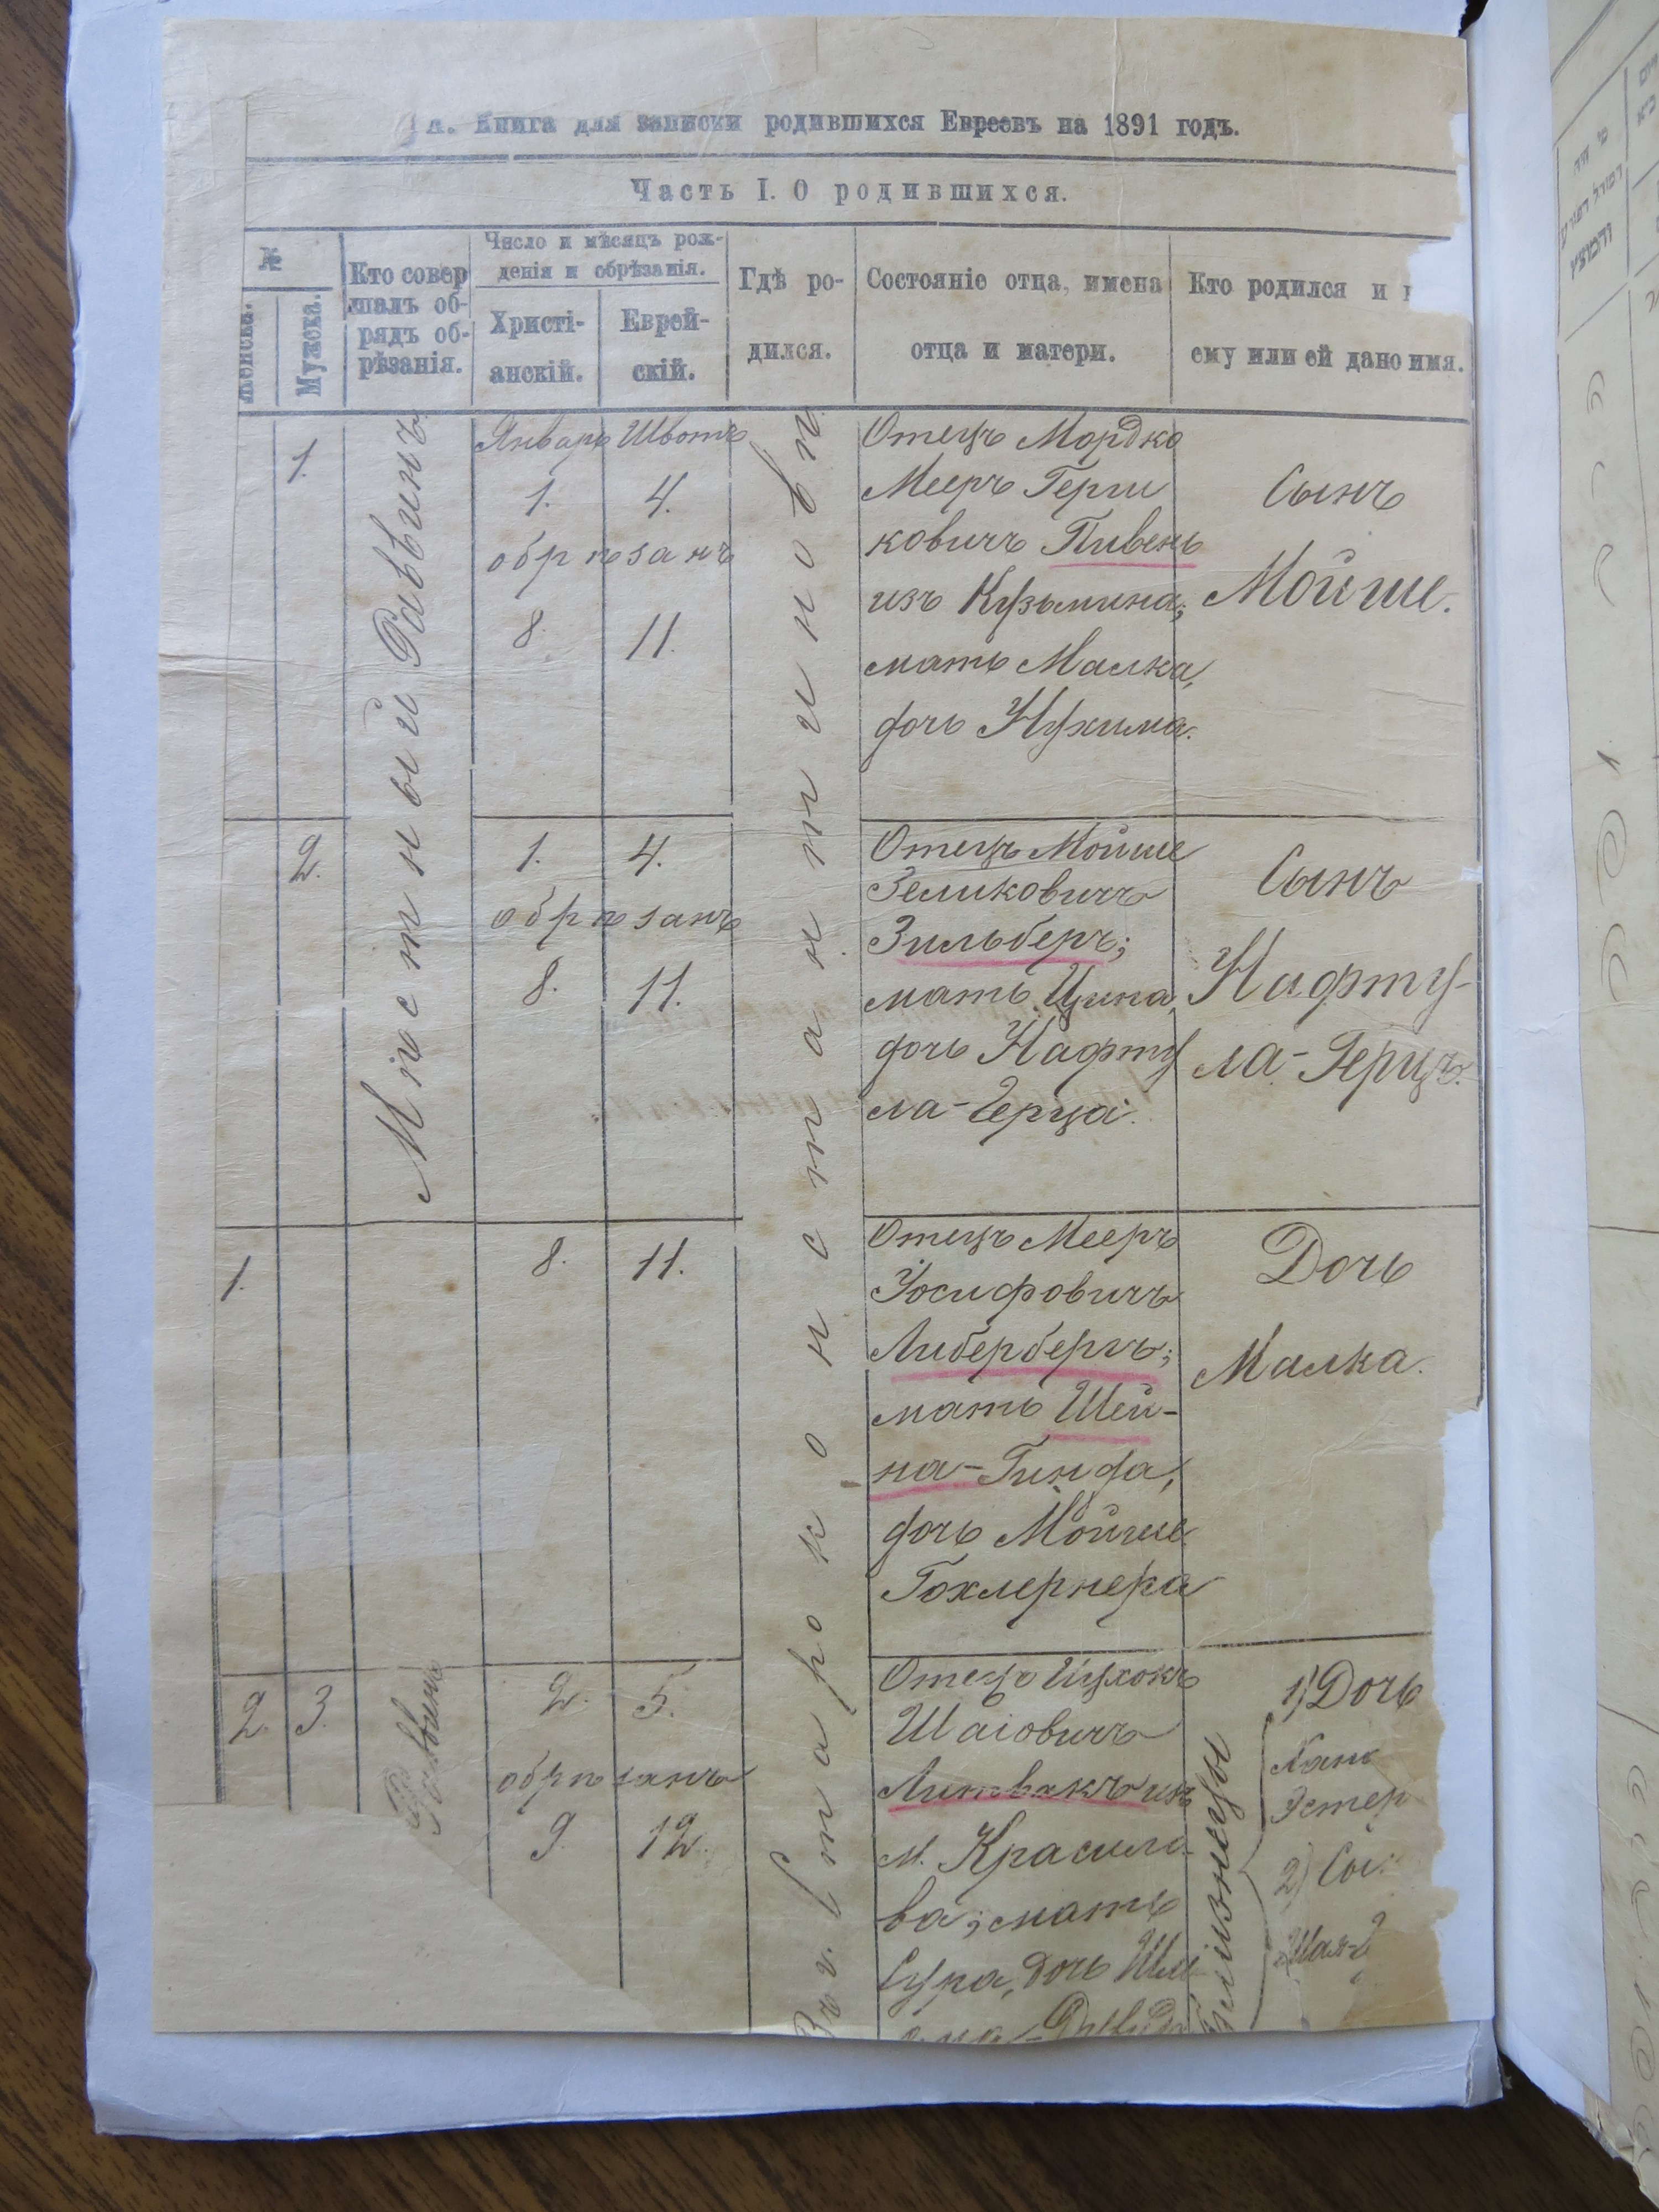 А. Книга для записки родившихся Евреевъ на 1891 годъ.
Часть I. О родившихся.
№
Женска.
Мужска.
Кто совер
шалъ об-
рядъ об-
рѣзанія.
Число и мѣсяцъ рож-
денія и обрѣзанія.
Христі-
анскій.
Еврей-
скій.
Гдѣ ро-
дился.
Состояніе отца, имена
отца и матери.
Кто родился и
ему или ей дано имя.
Мѣстный Раввинъ
Староконстантиновѣ
1.
Январь Шватъ
1. 4.
обрѣзанъ
8. 11.
Отецъ Мордко
Мееръ Герш
ковичъ Пивень
изъ Кузьмина;
мать Малка,
дочь Нухима.
Сынъ
Мойше.
2.
1. 4.
обрѣзанъ
8. 11.
Отецъ Мойше
Зеликовичъ
Зильберъ;
мать Цина,
дочь Нафту
ла-Герца.
Сынъ
Нафту-
ла-Герцъ.
1.
8. 11.
Отецъ Мееръ
Іосифовичъ
Либербергъ;
мать Шей-
на-Гинда,
дочь Мойше
Гохлернера
Дочь
Малка.
2. 3.
Раввинъ
2. 5.
обрѣзанъ
9. 12.
Отецъ Ицхокъ
Шаіовичъ
Литвакъ изъ
м. Красило-
ва; мать
Сура, дочь
Близнецы
1) Дочь
Эстер
2)